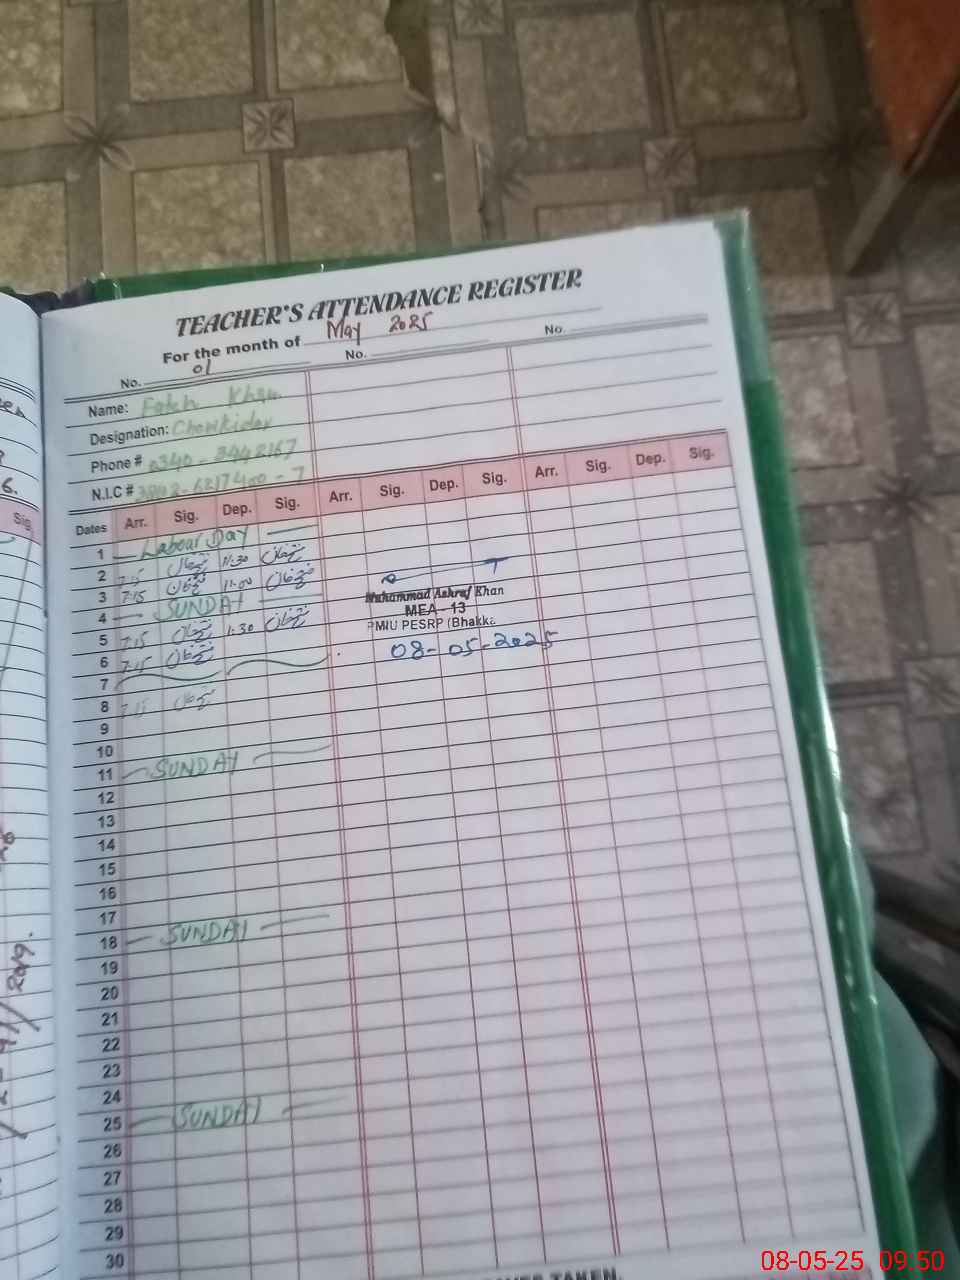 TEACHER'S ATTENDANCE REGISTER
For the month of May 2025
No. 01 No. No.
Name: Fateh Khan
Designation: Chowkidar
Phone # 0340-3442167
N.I.C #
Dates Arr. Sig. Dep. Sig. Arr. Sig. Dep. Sig. Arr. Sig. Dep. Sig.
1 Labour Day
2 7:15 11:30
3 7:15 11:00
4 SUNDAY
5 7:15 1:30
6 7:15
7
8 7:15
9
10
11 SUNDAY
12
13
14
15
16
17
18 SUNDAY
19
20
21
22
23
24
25 SUNDAY
26
27
28
29
30
Muhammad Ashraf Khan
MEA - 13
PMIU PESRP (Bhakka
08-05-2025
Sig.
6.
2019.
TAKEN.
08-05-25 09:50